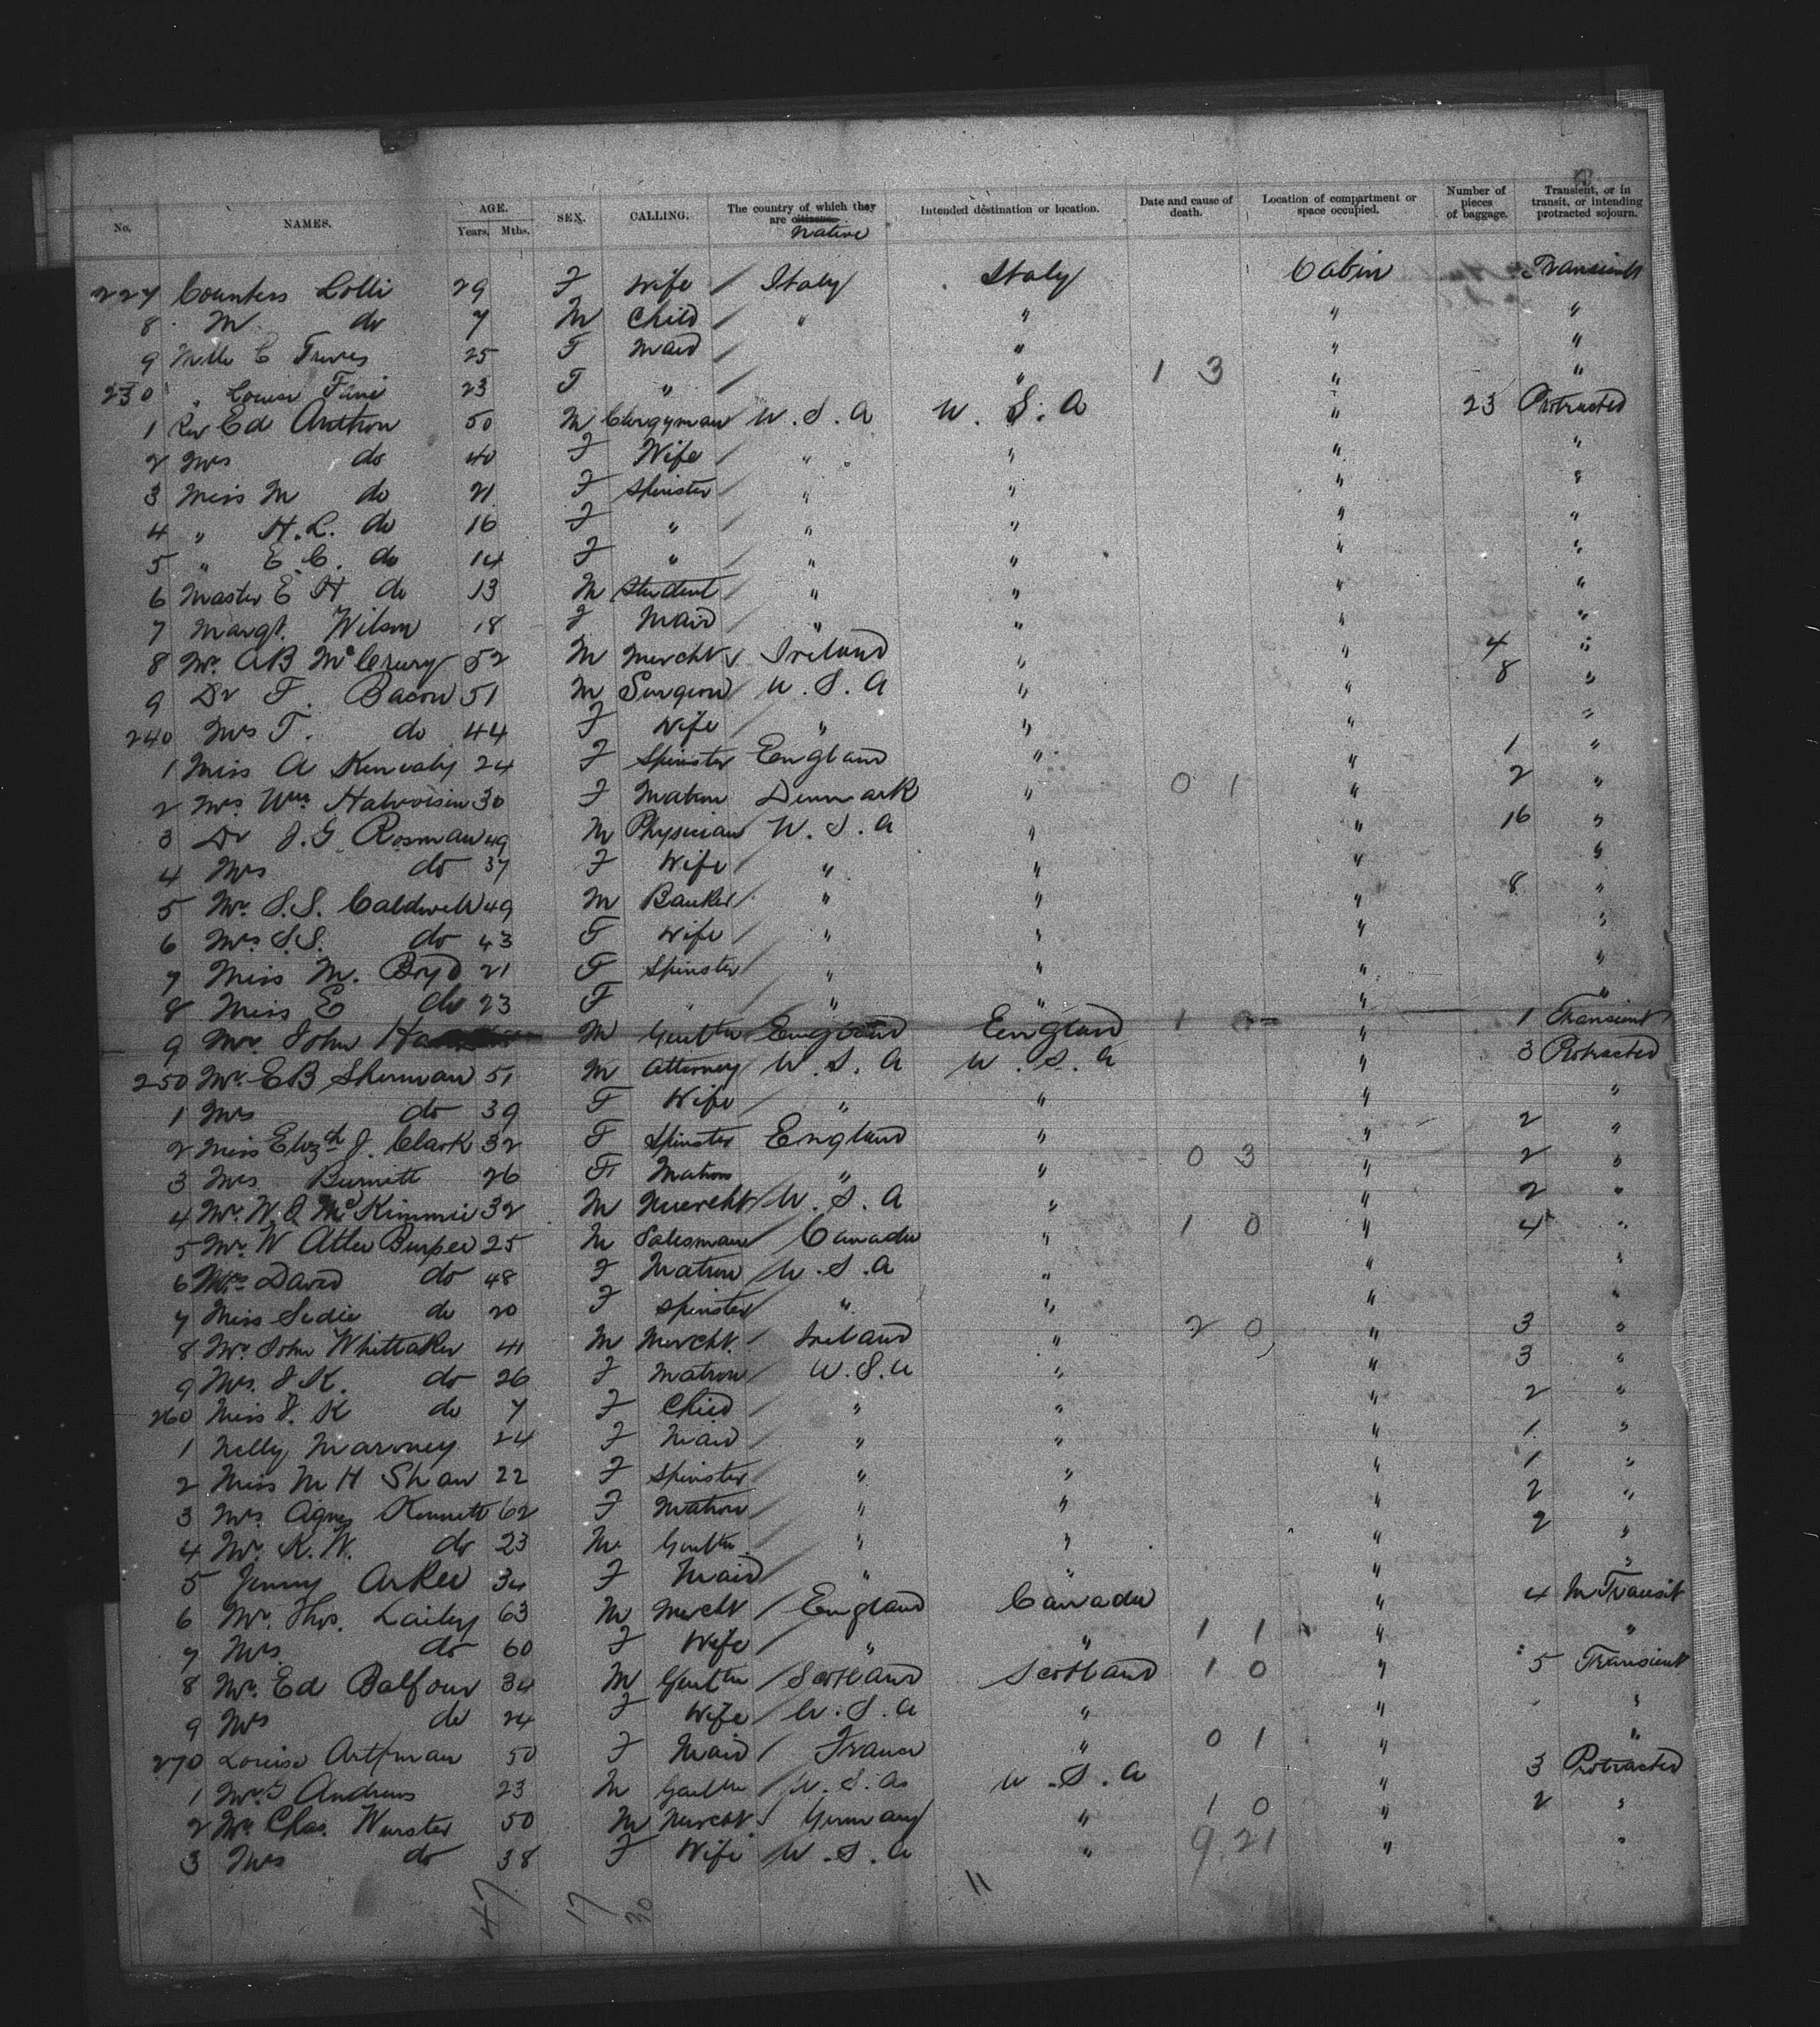 No. NAMES. AGE. Years. Mths. SEX. CALLING. The country of which they are citizens native Intended destination or location. Date and cause of death. Location of compartment or space occupied. Number of pieces of baggage. Transient, or in transit, or intending protracted sojourn.
227 Countess Lolli 29 F Wife / Italy Italy Cabin Transient
8 M do 7 M Child / " " " "
9 Melle C 25 F Maid / " " "
230 " Louise 23 F " / " 1 3 " "
1 Rev Ed Anthon 50 M Clergyman U.S.A U.S.A " 23 Protracted
2 Mrs do 40 F Wife / " " " "
3 Miss M do 21 F Spinster / " " " "
4 " H.L. do 16 F " / " " " "
5 " E.C. do 14 F " / " " " "
6 Master E H do 13 M Student / " " " "
7 Margt. Wilson 18 F Maid / " " " "
8 Mr. A B McCrury 52 M Mercht / Ireland " " 4 "
9 Dr F. Bacon 51 M Surgeon / U.S.A " " 8 "
240 Mrs F. do 44 F Wife / " " " "
1 Miss A 24 F Spinster England " " 1 "
2 Mrs Wm Halvoisen 30 F Matron Denmark " 0 1 " 2 "
3 Dr J.G. Rosman 49 M Physician U.S.A " " 16 "
4 Mrs do 37 F Wife / " " " "
5 Mr. S.S. Caldwell 49 M Banker / " " " 8 "
6 Mrs S.S. do 43 F Wife / " " " "
7 Miss M. Boyd 21 F Spinster / " " " "
8 Miss E do 23 F " " " " "
9 Mr. John M Gentln England England 1 0 " 1 Transient
250 Mr. E B Sherman 51 M Attorney U.S.A U.S.A " 3 Protracted
1 Mrs do 39 F Wife / " " " "
2 Miss Elizth J. Clark 32 F Spinster England " " 2 "
3 Mrs Burnett 26 F Matron " " 0 3 " 2 "
4 Mr. W. J McKimmie 32 M Mercht U.S.A " " 2 "
5 Mr. W Atlee Burpee 25 M Salesman / Canada " 1 0 " 4 "
6 Mrs David do 48 F Matron / U.S.A " " "
7 Miss Sedie do 20 F Spinster / " " " "
8 Mr. John Whittaker 41 M Mercht. / Ireland " 2 0 " 3 "
9 Mrs. J K. do 26 F Matron / U.S.A " " 3 "
260 Miss J. K do 7 F Child / " " " 2 "
1 Nelly Maroney 24 F Maid / " " " 1 "
2 Miss M H Shaw 22 F Spinster / " " " 1 "
3 Mrs. Agnes Kennett 62 F Matron / " " " 2 "
4 Mr. K.W. do 23 M Gentln. / " " " 2 "
5 Jenny 34 F Maid / " " " "
6 Mr. Thos. Lailey 63 M Mercht / England Canada " 4 In Transit
7 Mrs. do 60 F Wife / " " 1 1 " "
8 Mr. Ed Balfour 34 M Gentln / Scotland Scotland 1 0 " 5 Transient
9 Mrs do 24 F Wife / U.S.A " " "
270 Louise Artman 50 F Maid / France " 0 1 " "
1 Mr. G Andrews 23 M Gentln / U.S.A U.S.A " 3 Protracted
2 Mr. Chas. Wurster 50 M Mercht / Germany " 1 0 " 2 "
3 Mrs do 38 F Wife / U.S.A " 9 21 " "
47 17 30 11